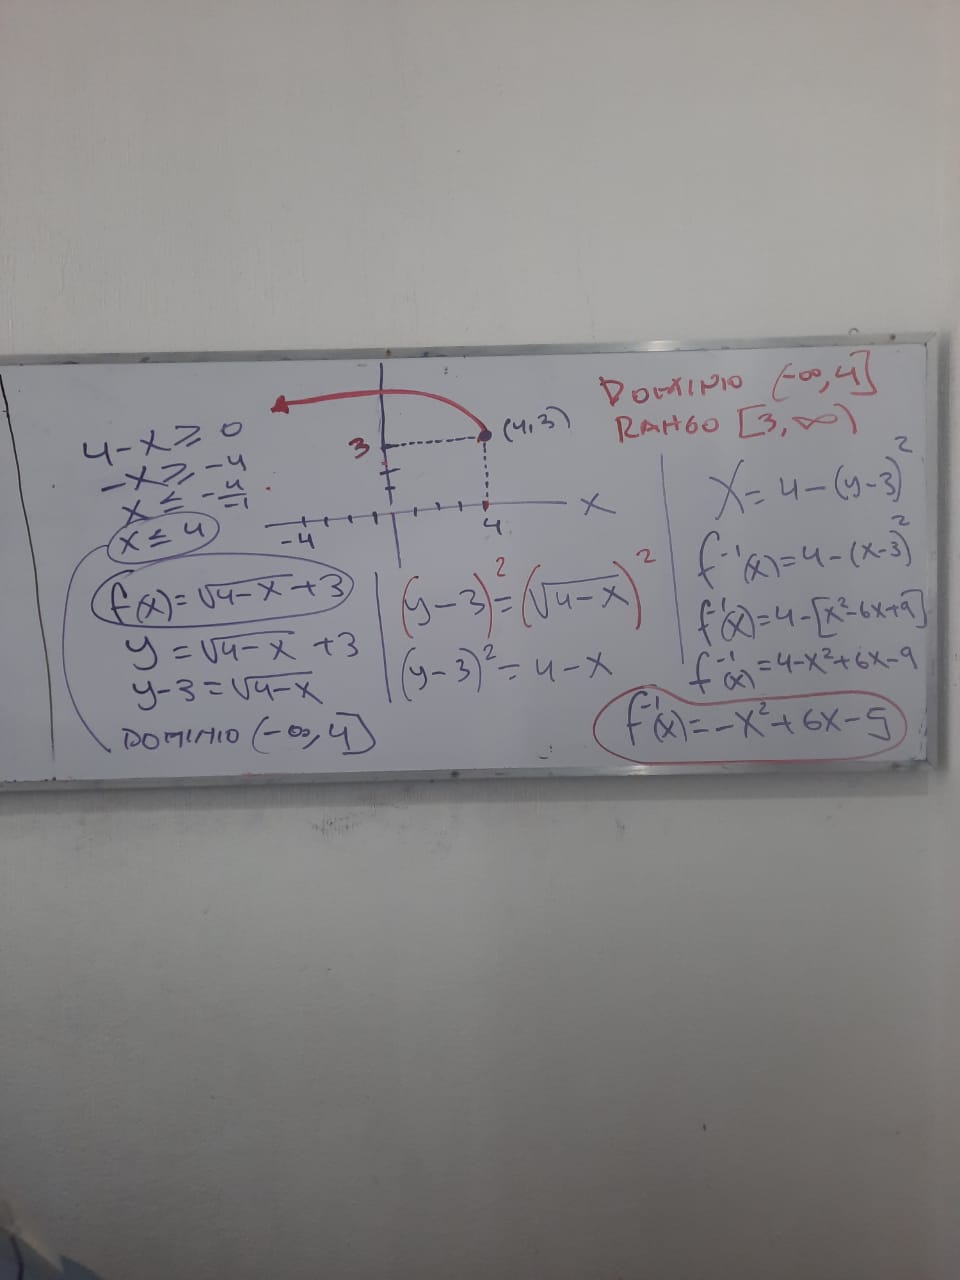 4-x ≥ 0
-x ≥ -4
x ≤ -4/-1
x ≤ 4
f(x) = √4-x + 3
y = √4-x + 3
y-3 = √4-x
DOMINIO (-∞,4]
3
(4,3)
-4
4
X
(y-3)² = (√4-x)²
(y-3)² = 4-x
DOMINIO (-∞,4]
RANGO [3,∞)
X = 4-(y-3)²
f⁻¹(x) = 4-(x-3)²
f⁻¹(x) = 4-[x²-6x+9]
f⁻¹(x) = 4-x²+6x-9
f⁻¹(x) = -x²+6x-5